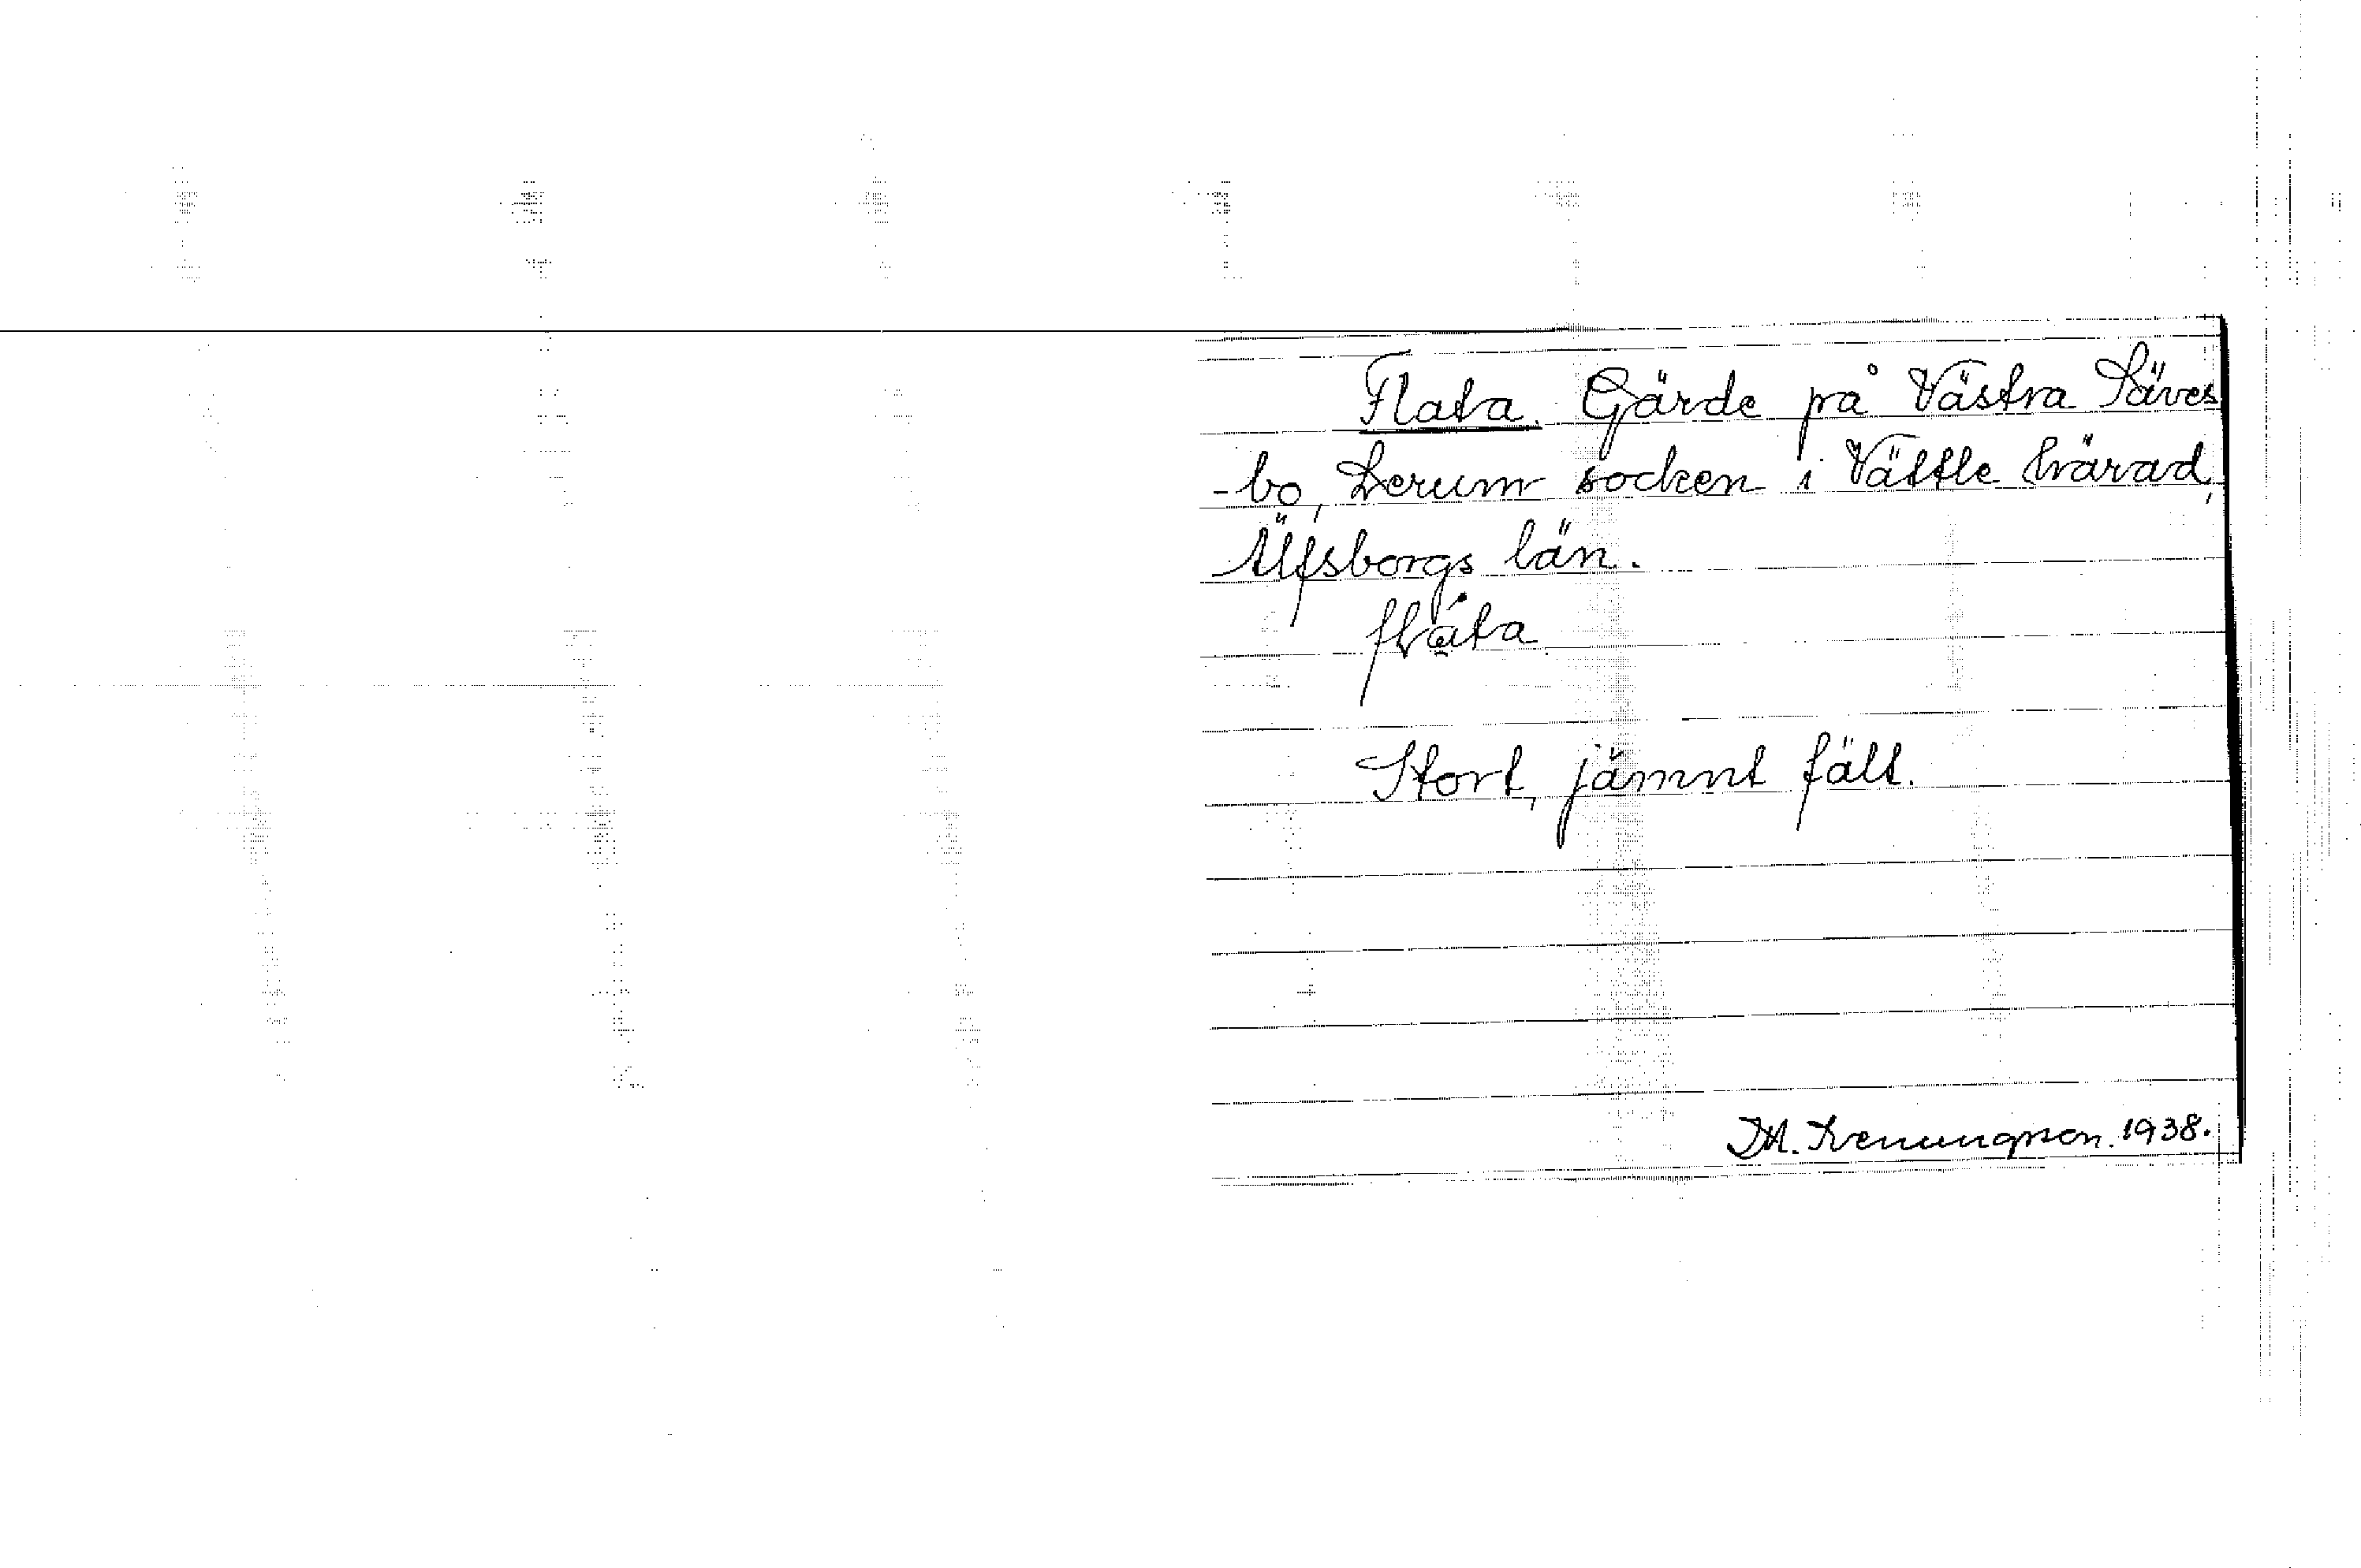 Flata. Gärde på Västra Säves
-bo, Lerum socken i Vättle härad,
Älfsborgs län.
flàta.
Stort, jämnt fält.
1938.